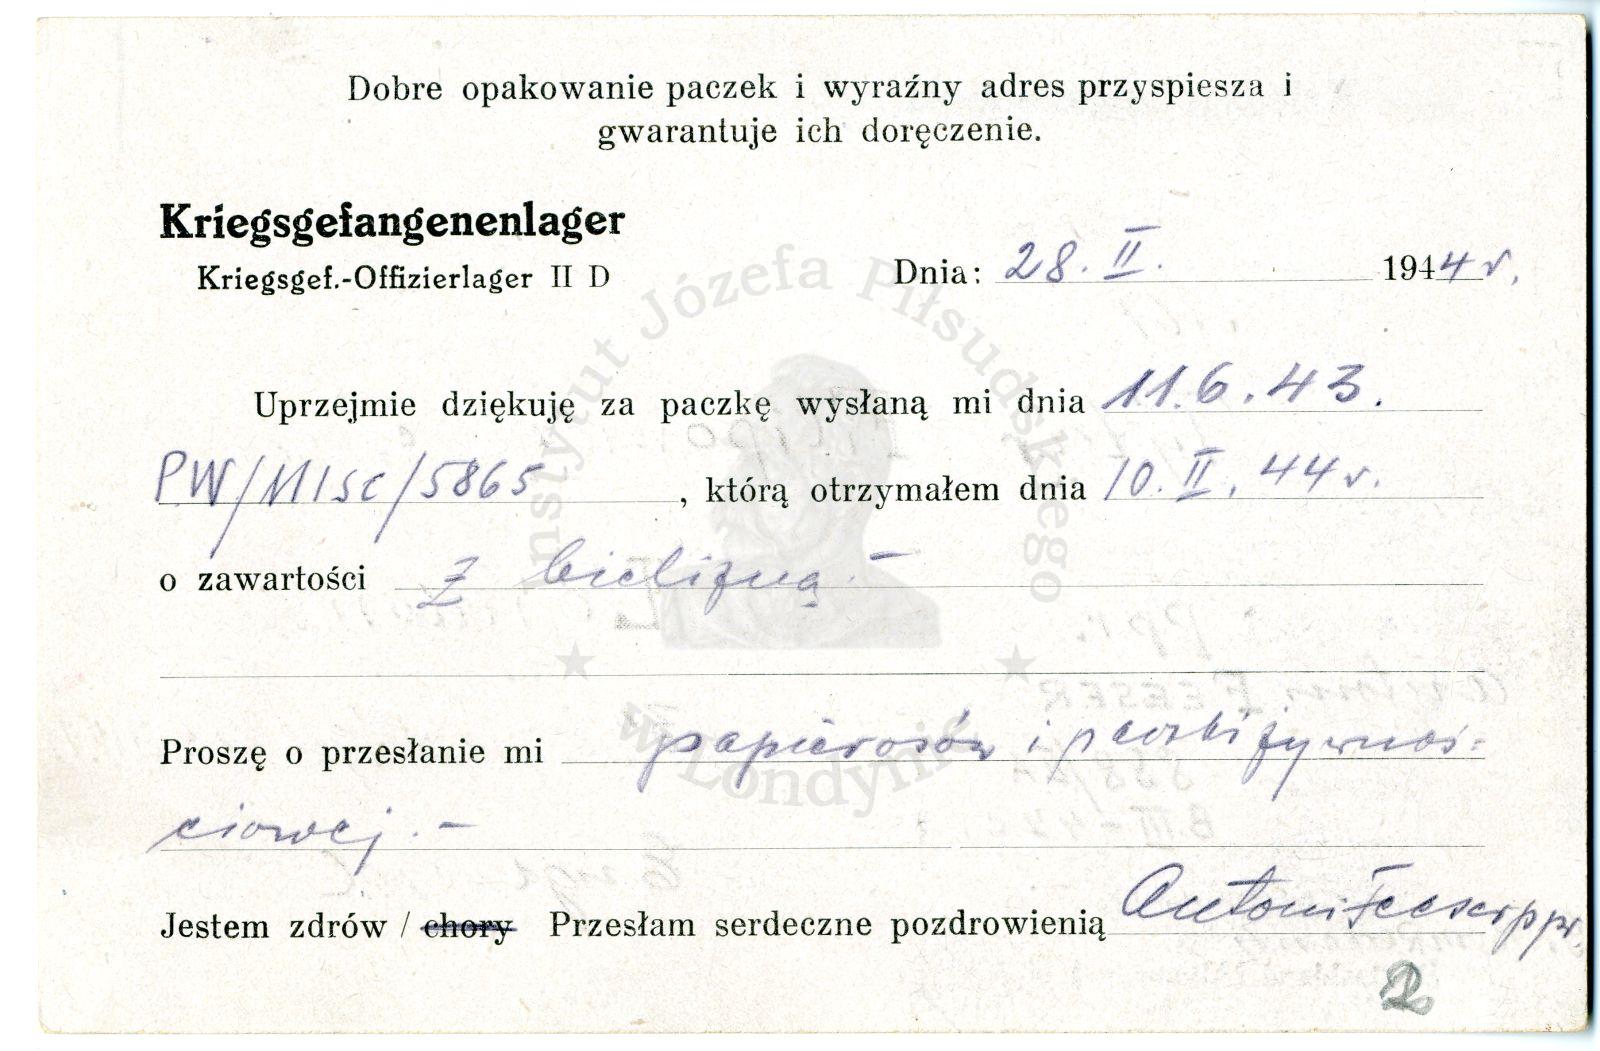 Dobre opakowanie paczek i wyraźny adres przyspiesza i
gwarantuje ich doręczenie.
Kriegsgefangenenlager
Kriegsgef.-Offizierlager II D
Dnia: 28. II. 1944 r.
Uprzejmie dziękuję za paczkę wysłaną mi dnia 11.6.43.
PW/MISC/5865, którą otrzymałem dnia 10. II. 44 r.
o zawartości z bielizną.–
Proszę o przesłanie mi papierosów i paczki żywnoś-
ciowej.–
Jestem zdrów / chory Przesłam serdeczne pozdrowienią Antoni Feeser ppr.
Instytut Józefa Piłsudskiego
w Londynie